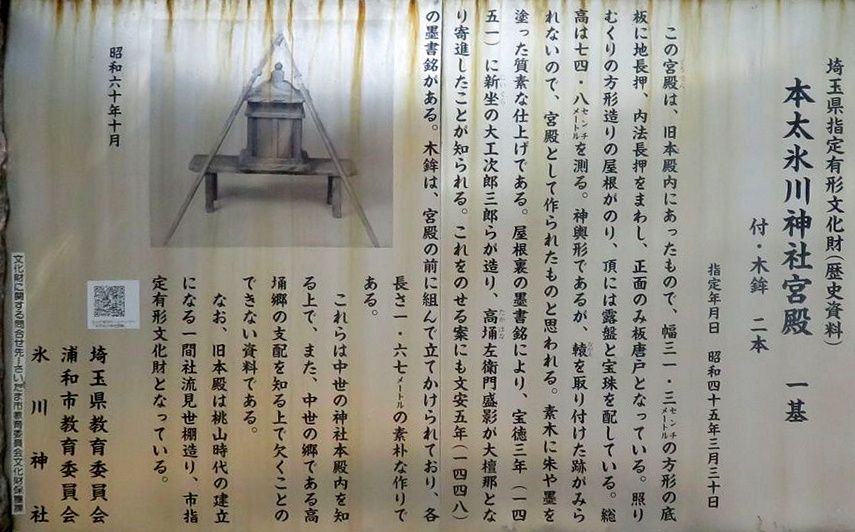 埼玉県指定有形文化財(歴史資料)
本太氷川神社宮殿 一基
付・木鉾 二本
指定年月日 昭和四十五年三月三十日
この宮殿は、旧本殿内にあったもので、幅三一・三センチメートルの方形の底
板に地長押、内法長押をまわし、正面のみ板唐戸となっている。照り
むくりの方形造りの屋根がのり、頂には露盤と宝珠を配している。総
高は七四・八センチメートルを測る。神輿形であるが、轅を取り付けた跡がみら
れないので、宮殿として作られたものと思われる。素木に朱や墨を
塗った質素な仕上げである。屋根裏の墨書銘により、宝徳三年(一四
五一)に新坐の大工次郎三郎らが造り、高埇左衛門盛影が大檀那とな
り寄進したことが知られる。これをのせる案にも文安五年(一四四八)
の墨書銘がある。木鉾は、宮殿の前に組んで立てかけられており、各
長さ一・六七メートルの素朴な作りで
ある。
これらは中世の神社本殿内を知
る上で、また、中世の郷である高
埇郷の支配を知る上で欠くことの
できない資料である。
なお、旧本殿は桃山時代の建立
になる一間社流見世棚造り、市指
定有形文化財となっている。
昭和六十年十月
埼玉県教育委員会
浦和市教育委員会
氷川神社
文化財に関する問合せ先…さいたま市教育委員会文化財保護課